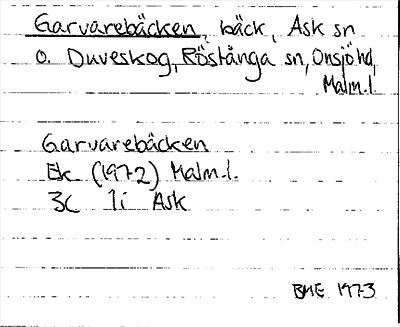 Garvarebäcken, bäck, Ask sn
o. Duveskog, Röstånga sn, Onsjö hd,
Malm.l.
Garvarebäcken
Ek (1972) Malm.l.
3C 1i Ask
BHE 1973